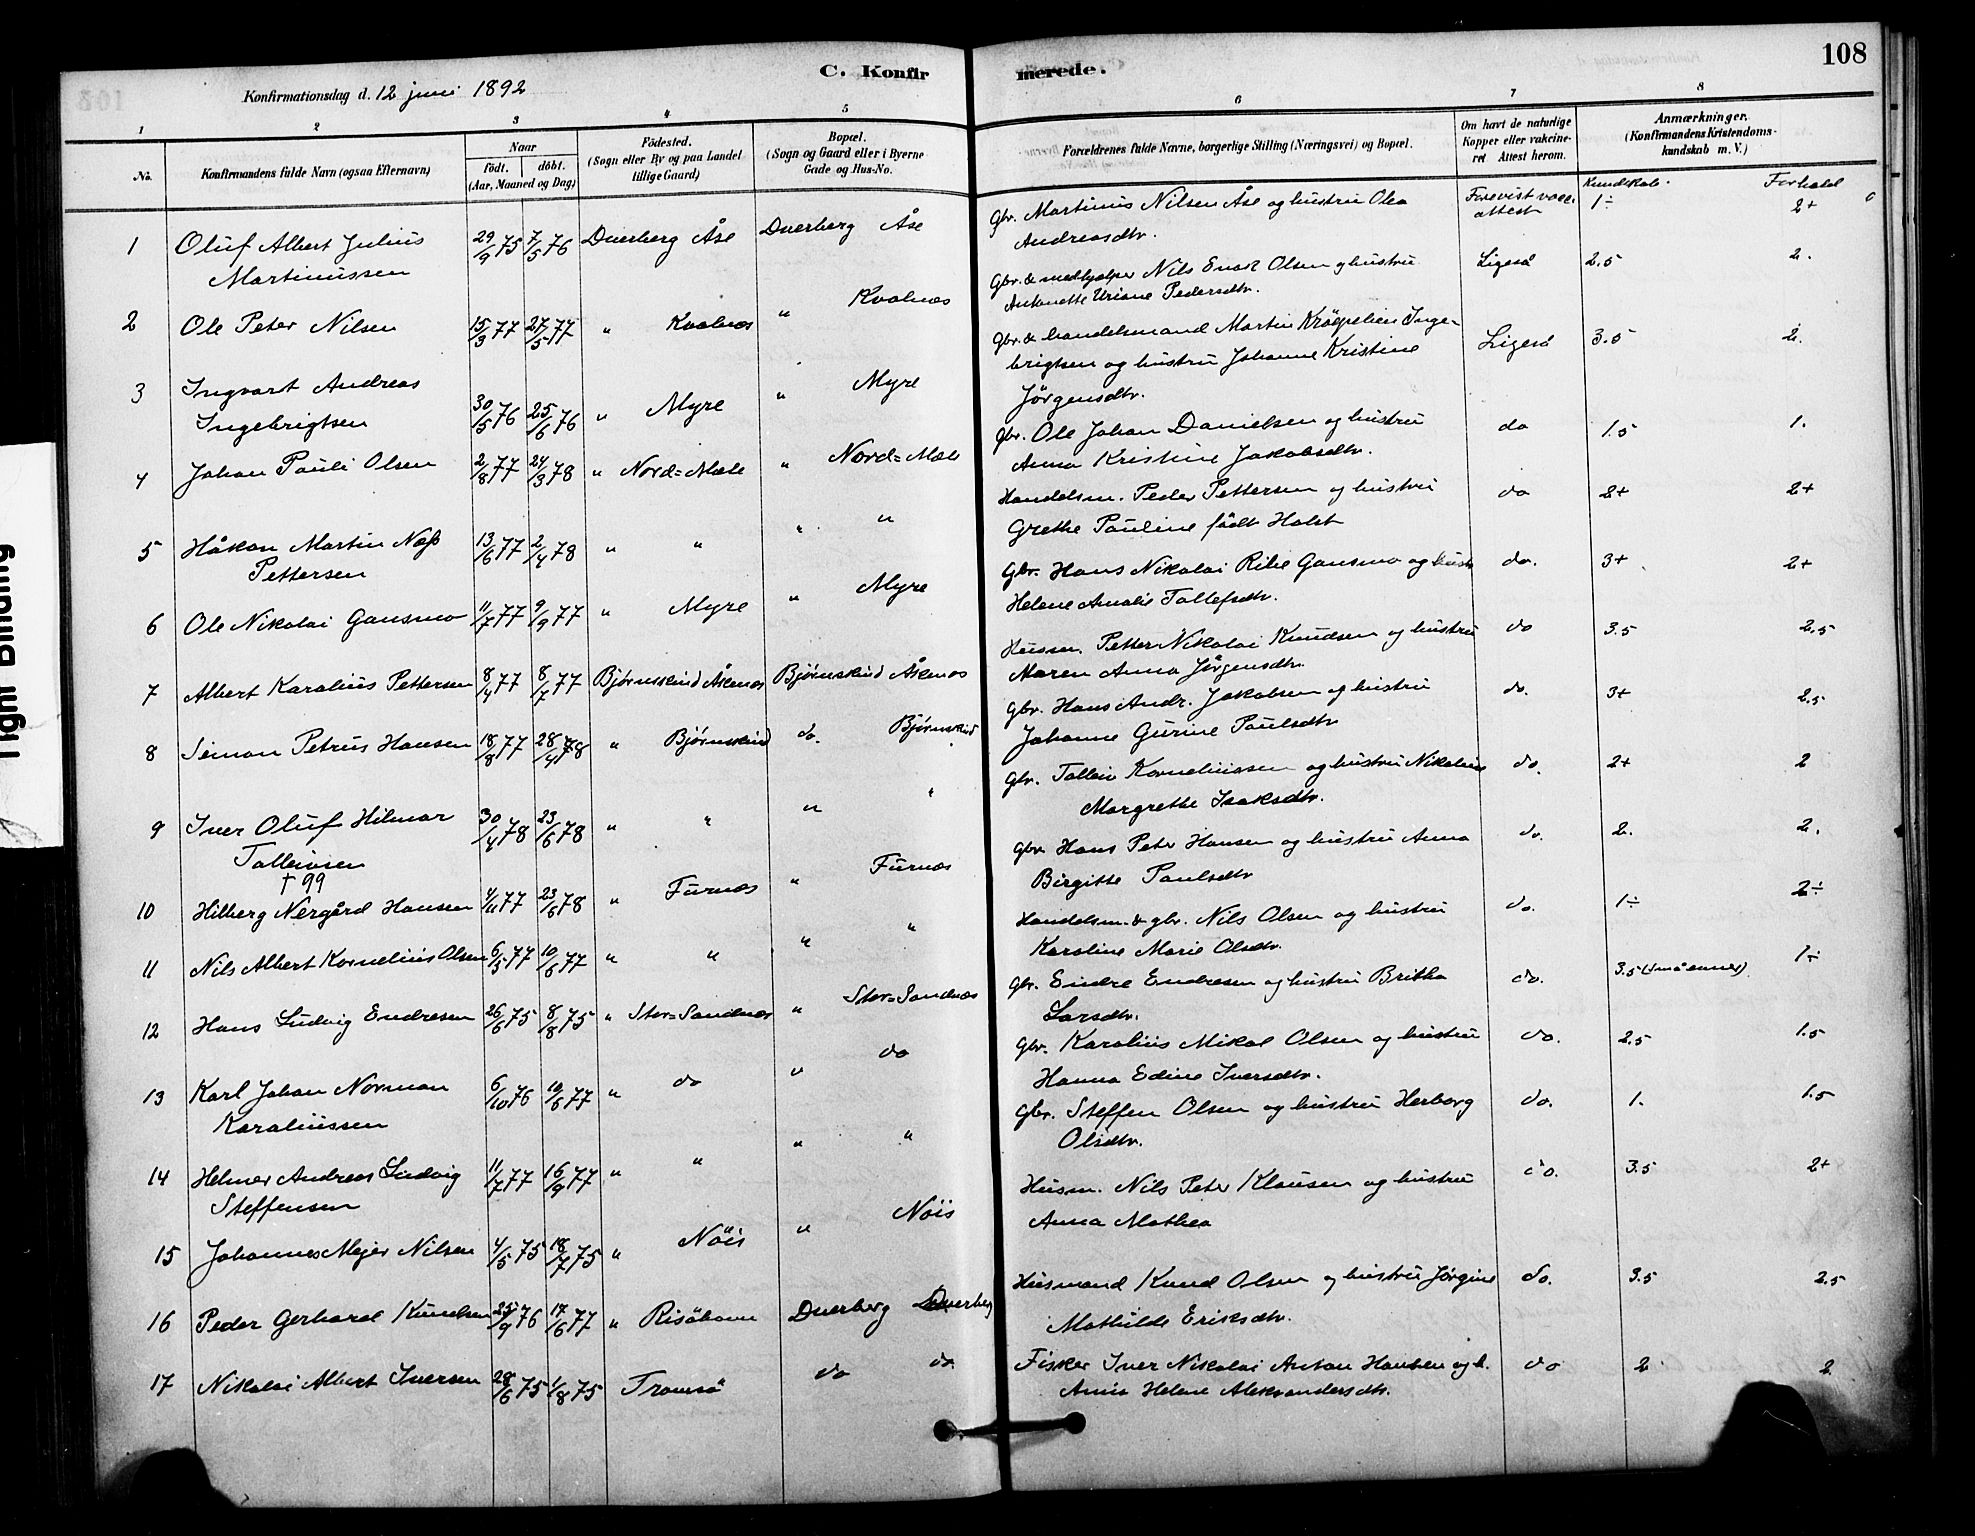 108
C. Konfirmerede.
Konfirmationsdag d. 12 juni 1892
1 2 3 4 5 6 7 8
No.
Konfirmandens fulde Navn (ogsaa Efternavn)
Naar
födt. döbt.
(Aar, Maaned og Dag)
Födested.
(Sogn eller By og paa Landet
tillige Gaard)
Bopæl.
(Sogn og Gaard eller i Byerne
Gade og Hus-No.
Forældrenes fulde Navne, borgerlige Stilling (Næringsvei) og Bopæl.
Om havt de naturlige
Kopper eller vakcine-
ret Attest herom.
Anmærkninger.
(Konfirmandens Kristendoms-
kundskab m. V.)
Kundskab. Forhold
1 Oluf Albert Julius 29/9 75 7/5 76 Dverberg Åse Dverberg Åse Gbr. Martinus Nilsen Åse og hustru Olea Forevist vacc. 1÷ 2+
Martinussen Andreasdtr. attest
2 Ole Peter Nilsen 15/3 77 27/5 77 " Kvalnes " Kvalnæs Gbr. & medhjelper Nils Enok Olsen og hustru Ligeså 2.5 2.
Antonette Uriane Pedersdtr.
3 Ingvart Andreas 30/5 76 25/6 76 " Myre " Myre Gbr. & handelsmand Martin Krøgelien Inge- Ligeså 3.5 2.
Ingebrigtsen brigtsen og hustru Johanne Kristine
Jørgensdtr.
4 Johan Pauli Olsen 2/8 77 24/3 78 " Nord=Mæle " Nord=Mæle gbr. Ole Johan Danielsen og hustru do 1.5 1.
Anna Kristine Jakobsdtr.
5 Håkon Martin Næss 13/6 77 2/4 78 " " " " Handelsm. Peder Pettersen og hustru do 2+ 2+
Pettersen Grethe Pauline født Holst
6 Ole Nikolai Gansmo 11/7 77 9/9 77 " Myre " Myre Gbr. Hans Nikolai Gansmo og hustr do. 3+ 2+
Helene Amalie Tollefsdtr.
7 Albert Karolius Pettersen 8/4 77 8/7 77 Bjørnskind Åknes Bjørnskind Åkenes Husm. Petter Nikolai Knudsen og hustru do 3.5 2.5
Maren Anna Jørgensdtr.
8 Simon Petrus Hansen 18/8 77 28/4 78 " Bjørnskind do. Bjørnskind gbr. Hans Andr. Jakobsen og hustru do. 3+ 2.5
Johanne Gurine Paulsdtr
9 Iver Oluf Hilmar 30/4 78 23/6 78 " " " " Gbr. Tolleiv Korneliussen og hustru Nikoline do. 2+ 2
Tolleivsen Margrethe Isaksdtr.
† 99
10 Hilberg Nergård Hansen 4/11 77 23/6 78 " Furnæs " Furnæs gbr Hans Peter Hansen og hustru Anna do. 2. 2.
Birgitte Paulsdtr
11 Nils Albert Kornelius Olsen 6/3 77 10/6 77 " " " " Handelsm. & gbr. Nils Olsen og hustru do. 1÷ 2÷
Karoline Marie Olsdtr.
12 Hans Ludvig Endresen 26/6 75 8/8 75 " Stor=Sandnes " Stor=Sandnæs gbr. Endre Endresen og hustru Britha do. 3.5 (små evner) 1÷
Larsdtr.
13 Karl Johan Norman 6/10 76 10/6 77 " do " do gbr. Karolius Mikal Olsen og hustru do. 2.5 1.5
Karoliussen Hanna Edine Iversdtr.
14 Helmer Andreas Ludvig 11/7 77 16/9 77 " " " " gbr. Steffen Olsen og hustru Herborg do. 1. 1.5
Steffensen Olsdtr.
15 Johannes Mejer Nilsen 4/5 75 18/7 75 " Nöis " Nöis Husm. Nils Peter Klausen og hustru do. 3.5 2+
Anna Mathea
16 Peder Gerhard Knudsen 25/9 76 17/6 77 " Risöhavn Dverberg Dverberg Husmand Knud Olsen og hustru Jørgine do. 3.5 2.5
Mathilde Eriksdtr.
17 Nikolai Albert Iversen 28/6 75 1/8 75 Tromsö do do Fisker Iver Nikolai Anton Hansen og h. do 2 2.
Anne Helene Aleksandersdtr.
Tight Binding